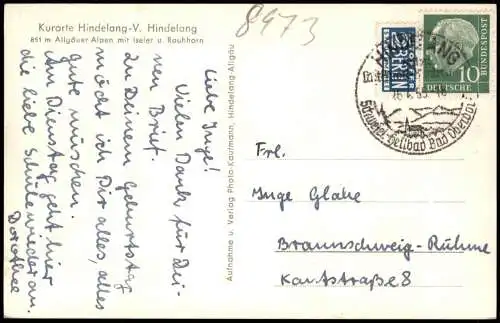 Kurorte Hindelang-V. Hindelang
851 m Allgäuer Alpen mit Iseler u. Rauhhorn
8973
Liebe Inge!
Vielen Dank für Dei-
nen Brief.
Zu Deinem Geburtstag
möcht ich Dir alles, alles
gute wünschen.
Am Dienstag geht hier
die liebe Schule wieder an.
Dorothee
Aufnahme u. Verlag Photo-Kaufmann, Hindelang Allgäu
NOTOPFER
2 BERLIN
STEUERMARKE
DEUTSCHE
BUNDESPOST
10
HINDELANG
Schwefel-Heilbad Bad Oberdorf
Frl.
Inge Glake
Braunschweig-Rühme
Kantstraße 8